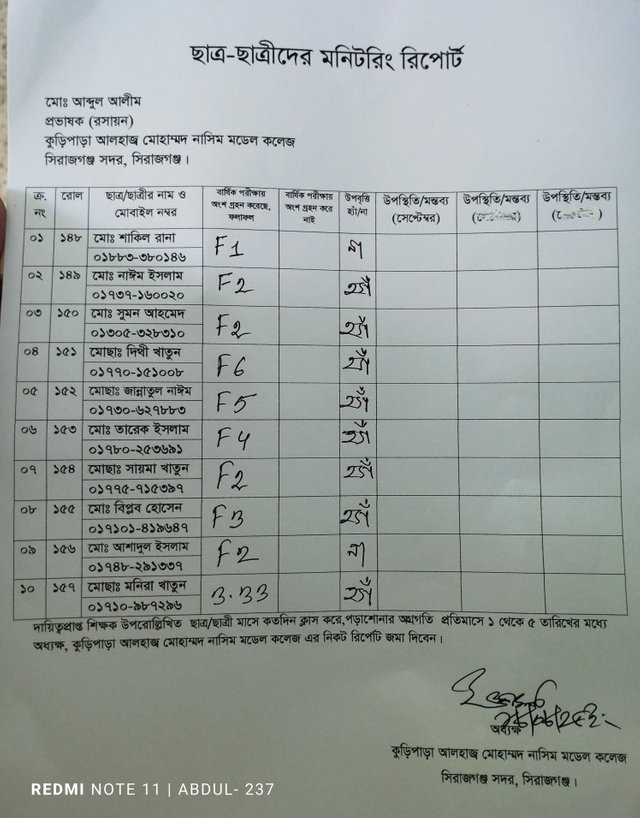 ছাত্র-ছাত্রীদের মনিটরিং রিপোর্ট
মোঃ আব্দুল আলীম
প্রভাষক (রসায়ন)
কুড়িপাড়া আলহাজ্ব মোহাম্মদ নাসিম মডেল কলেজ
সিরাজগঞ্জ সদর, সিরাজগঞ্জ।
ক্র. নং রোল ছাত্র/ছাত্রীর নাম ও মোবাইল নম্বর বার্ষিক পরীক্ষায় অংশ গ্রহন করেছে, ফলাফল বার্ষিক পরীক্ষায় অংশ গ্রহন করে নাই উপবৃত্তি হ্যাঁ/না উপস্থিতি/মন্তব্য (সেপ্টেম্বর) উপস্থিতি/মন্তব্য উপস্থিতি/মন্তব্য
০১ ১৪৮ মোঃ শাকিল রানা F1 না
০১৮৮৩-৩৮০১৪৬
০২ ১৪৯ মোঃ নাঈম ইসলাম F2 হ্যাঁ
০১৭৩৭-১৬০০২০
০৩ ১৫০ মোঃ সুমন আহমেদ F2 হ্যাঁ
০১৩০৫-৩২৮৩১০
০৪ ১৫১ মোছাঃ দিথী খাতুন F6 হ্যাঁ
০১৭৭০-১৫১০০৮
০৫ ১৫২ মোছাঃ জান্নাতুল নাঈম F5 হ্যাঁ
০১৭৩০-৬২৭৮৮৩
০৬ ১৫৩ মোঃ তারেক ইসলাম F4 হ্যাঁ
০১৭৮০-২৫৩৬৯১
০৭ ১৫৪ মোছাঃ সায়মা খাতুন F2 হ্যাঁ
০১৭৭৫-৭১৫৩৯৭
০৮ ১৫৫ মোঃ বিপ্লব হোসেন F3 হ্যাঁ
০১৭১০১-৪১৯৬৪৭
০৯ ১৫৬ মোঃ আশাদুল ইসলাম F2 না
০১৭৪৮-২৯১৩৩৭
১০ ১৫৭ মোছাঃ মনিরা খাতুন 3.33 হ্যাঁ
০১৭১০-৯৮৭২৯৬
দায়িত্বপ্রাপ্ত শিক্ষক উপরোল্লিখিত ছাত্র/ছাত্রী মাসে কতদিন ক্লাস করে,পড়াশোনার অগ্রগতি প্রতিমাসে ১ থেকে ৫ তারিখের মধ্যে
অধ্যক্ষ, কুড়িপাড়া আলহাজ্ব মোহাম্মদ নাসিম মডেল কলেজ এর নিকট রিপোর্ট জমা দিবেন।
অধ্যক্ষ
কুড়িপাড়া আলহাজ্ব মোহাম্মদ নাসিম মডেল কলেজ
সিরাজগঞ্জ সদর, সিরাজগঞ্জ।
REDMI NOTE 11 | ABDUL- 237